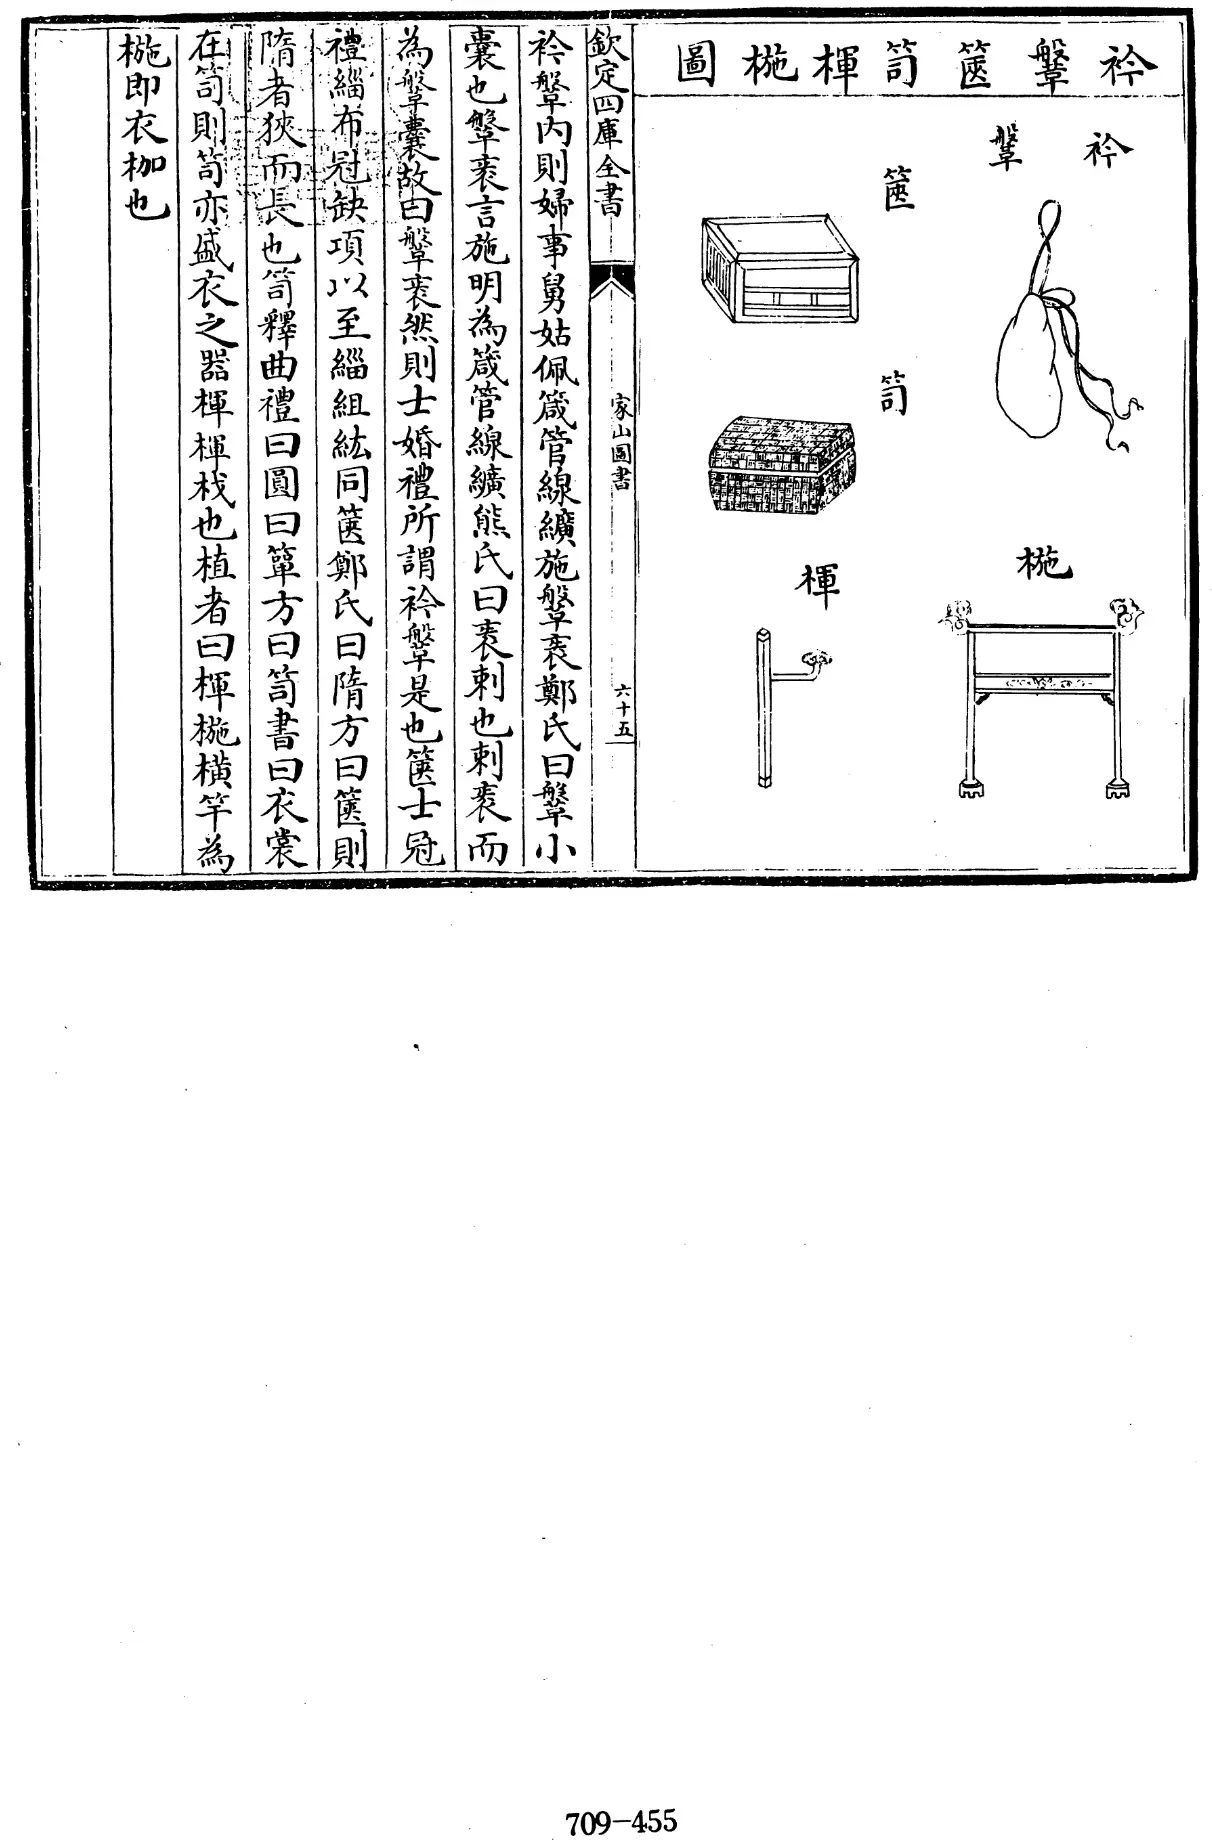 衿鞶篋笥楎椸圖
衿
鞶
篋
笥
椸
楎
欽定四庫全書
家山圖書
六十五
衿鞶内則婦事舅姑佩箴管線纊施鞶袠鄭氏曰鞶小
囊也鞶袠言施明為箴管線纊熊氏曰袠刺也刺袠而
為鞶囊故曰鞶袠然則士婚禮所謂衿鞶是也篋士冠
禮緇布冠缺項以至緇組紘同篋鄭氏曰隋方曰篋則
隋者狹而長也笥釋曲禮曰圓曰簞方曰笥書曰衣裳
在笥則笥亦盛衣之器楎楎杙也植者曰楎椸橫竿為
椸即衣枷也
709-455